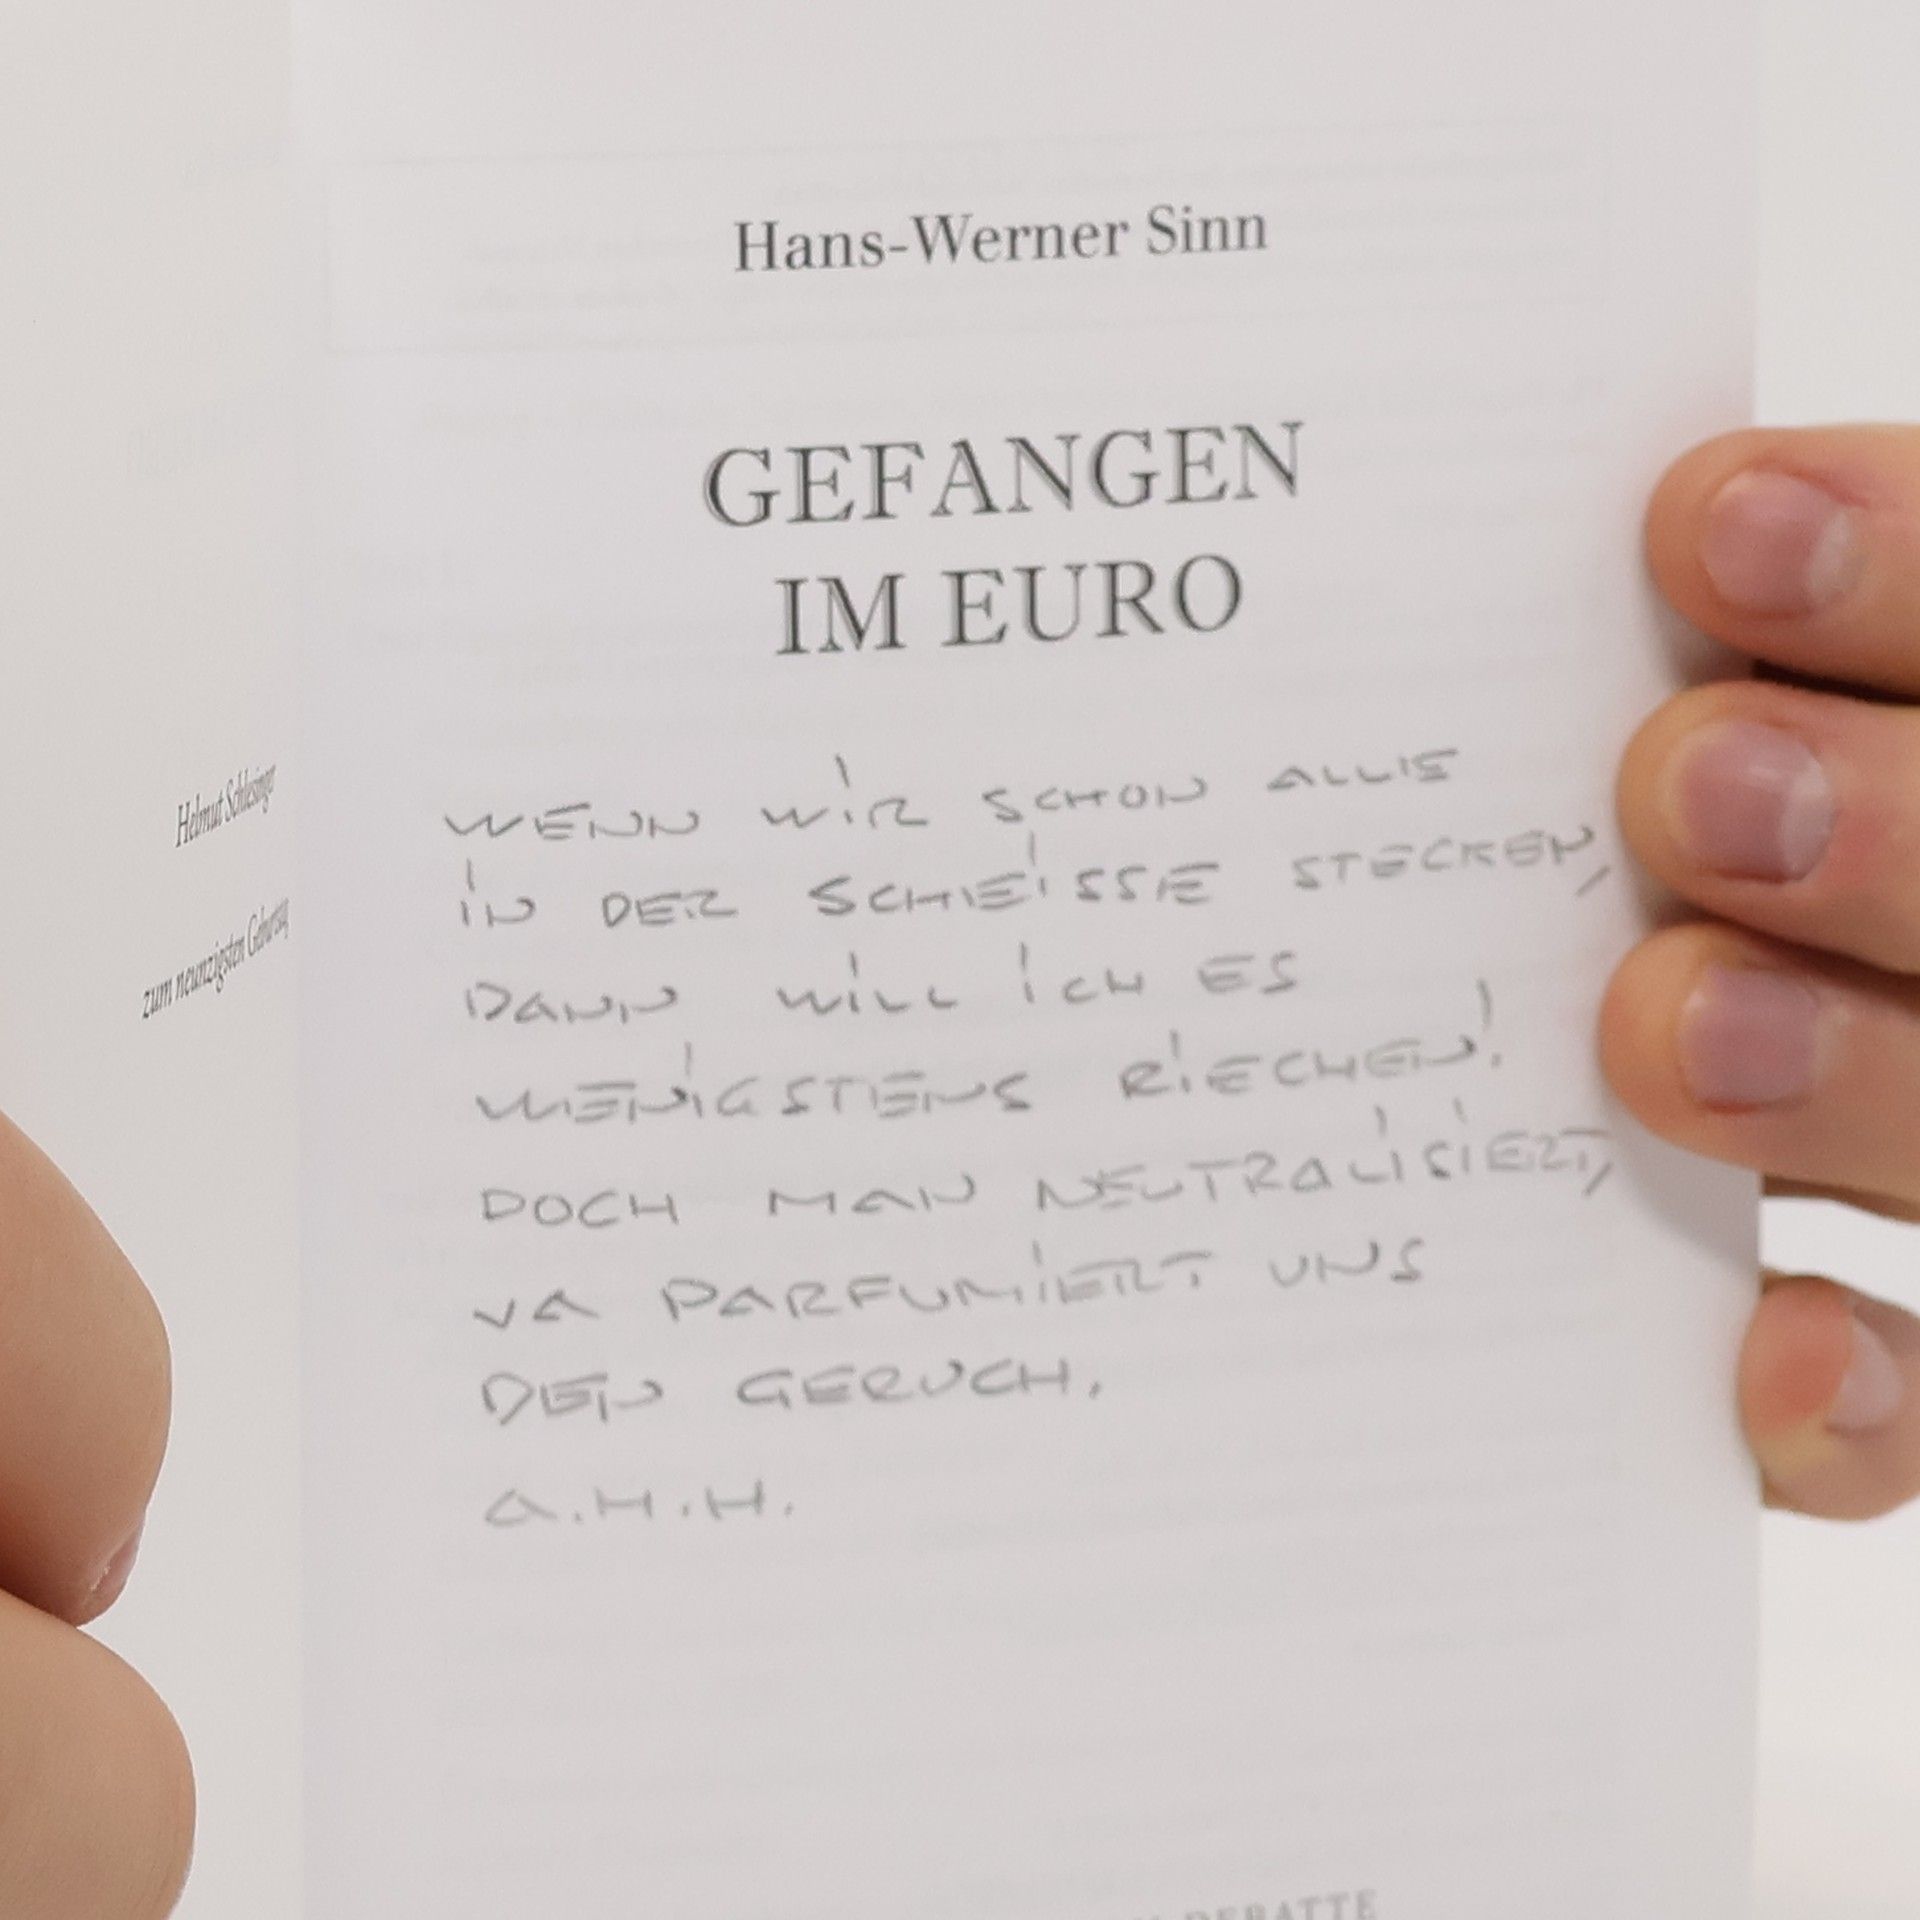 Helmut Schlesinger
zum neunzigsten Geburtstag
Hans-Werner Sinn
GEFANGEN
IM EURO
WENN WiR SCHON ALLE
iN DER SCHEiSSE STECKEN,
DANN WiLL iCH ES
WENiGSTENS RiECHEN!
DOCH MAN NEUTRALiSiERT,
JA PARFUMiERT UNS
DEN GERUCH.
A.H.H.
DEBATTE